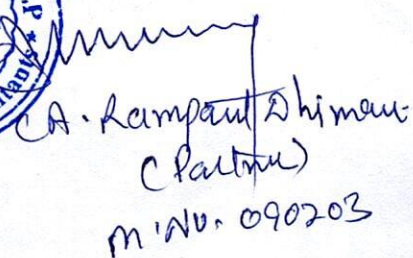 CA. Rampaul Dhiman
(Partner)
M.No. 090203